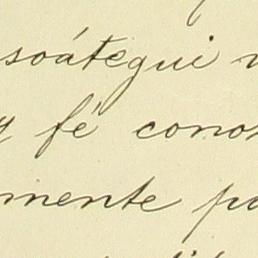 soátegui
y fé conos
mente pa